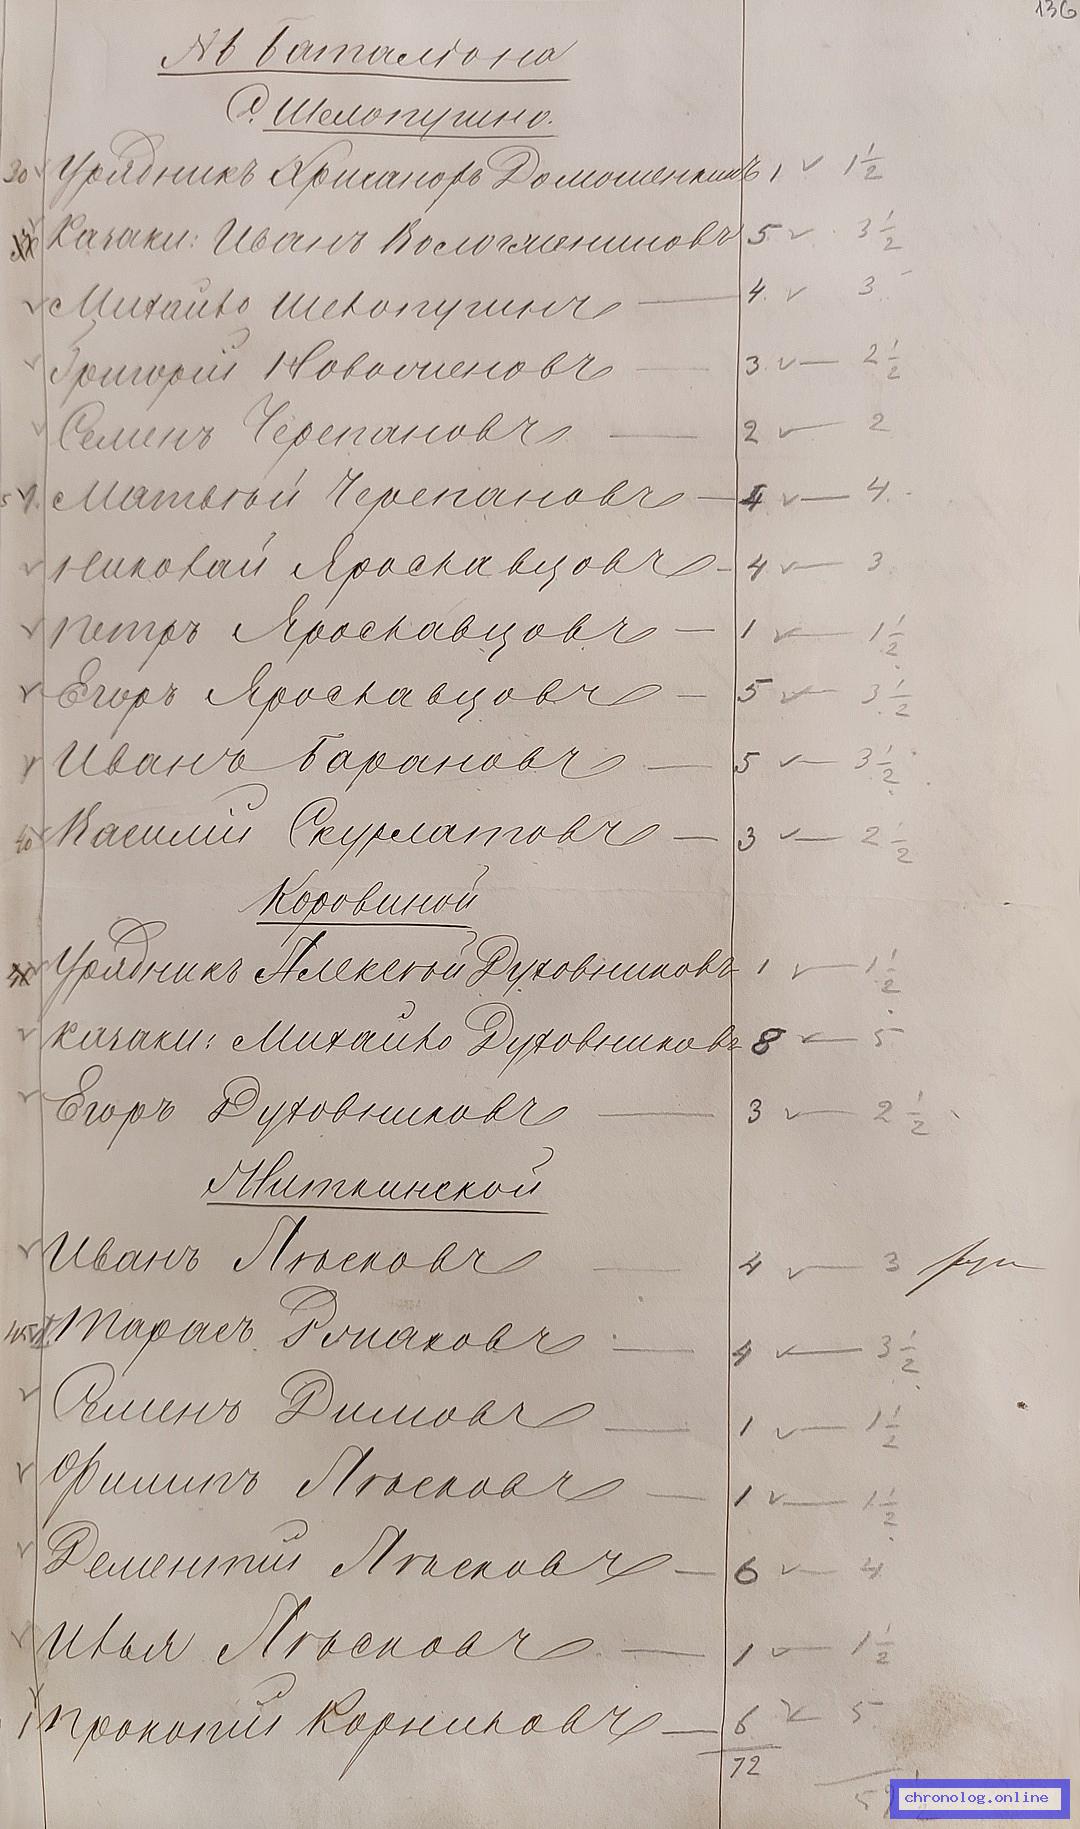 136
№ 6 баталіона
С. Шелопугино.
30 Урядникъ Хрисанфъ Домошонкинъ 1 1 1/2
Казаки: Иванъ 5 3 1/2
Михайло Шелопугинъ 4 3
Григорій 3 2 1/2
Семенъ Черепановъ 2 2
Матвѣй Черепановъ 4 4
Николай Ярославцовъ 4 3
Петръ Ярославцовъ 1 1 1/2
Егоръ Ярославцовъ 5 3 1/2
Иванъ Барановъ 5 3 1/2
40 Василій Скурлатовъ 3 2 1/2
Коровиной
Урядникъ Алексѣй Духовниковъ 1 1 1/2
Казаки: Михайло Духовниковъ 8 5
Егоръ Духовниковъ 3 2 1/2
Миткинской
Иванъ Лѣсковъ 4 3
45 Тарасъ 4 3 1/2
Семенъ Димовъ 1 1 1/2
Филипъ Лѣсковъ 1 1 1/2
Дементий Лѣсковъ 6 4
Илья Лѣсковъ 1 1 1/2
Прокопій Корниловъ 6 5
72
chronolog.online